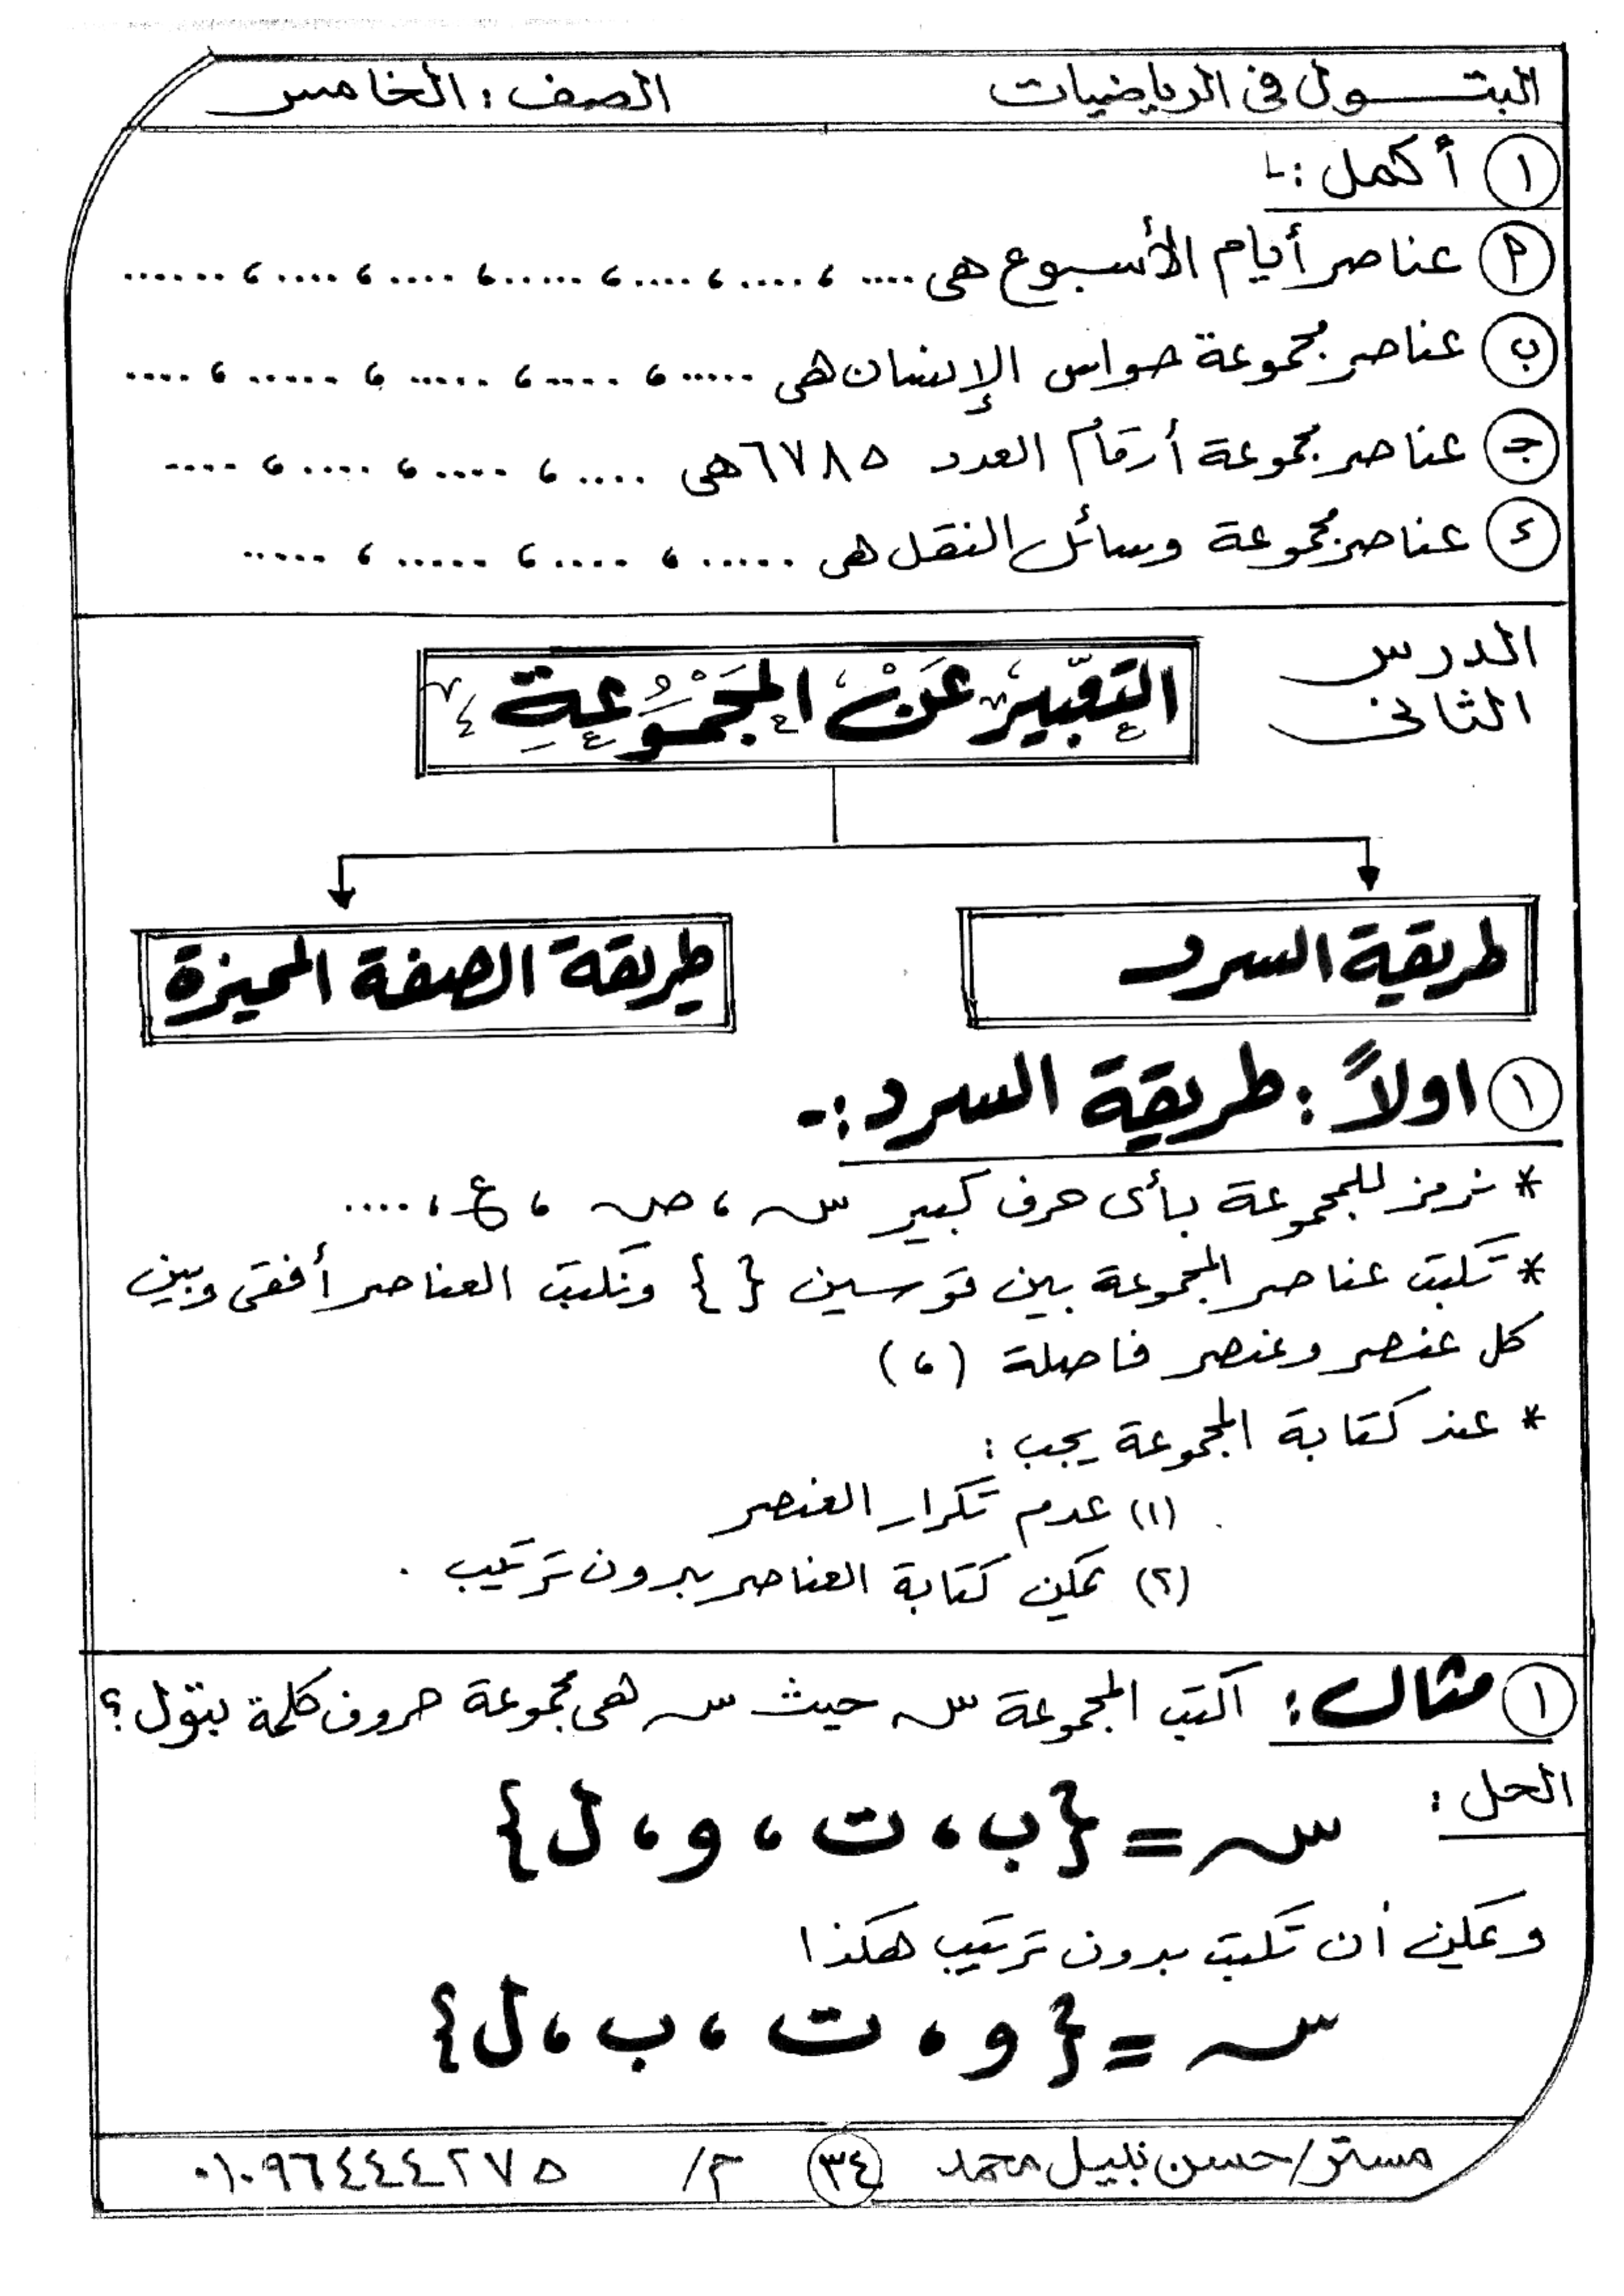 البتــول فى الرياضيات الصف : الخامس
١ أكمل :-
أ عناصر أيام الأسبوع هى .... ، ..... ، .... ، ...... ، .... ، .... ، ......
ب عناصر مجموعة حواس الإنسان هى ..... ، .... ، ..... ، ..... ، ....
جـ عناصر مجموعة أرقام العدد ٦٧٨٥ هى .... ، .... ، .... ، ....
د عناصر مجموعة وسائل النقل هى ..... ، .... ، ..... ، .....
الدرس الثانى
التعبير عن المجموعة
طريقة السرد
طريقة الصفة المميزة
١ اولاً : طريقة السرد :-
* نرمز للمجموعة بأى حرف كبير س ، ص ، ع ، ....
* تكتب عناصر المجموعة بين قوسين { } ونكتب العناصر أفقى وبين
كل عنصر وعنصر فاصلة (،)
* عند كتابة المجموعة يجب :
(١) عدم تكرار العنصر
(٢) يمكن كتابة العناصر بدون ترتيب .
١ مثال : اكتب المجموعة س حيث س هى مجموعة حروف كلمة بتول ؟
الحل :
س = {ب ، ت ، و ، ل}
ويمكن أن تكتب بدون ترتيب هكذا
س = {و ، ت ، ب ، ل}
مستر/حسن نبيل محمد ٣٤ م/ ٠١٠٩٦٤٤٤٢٧٥